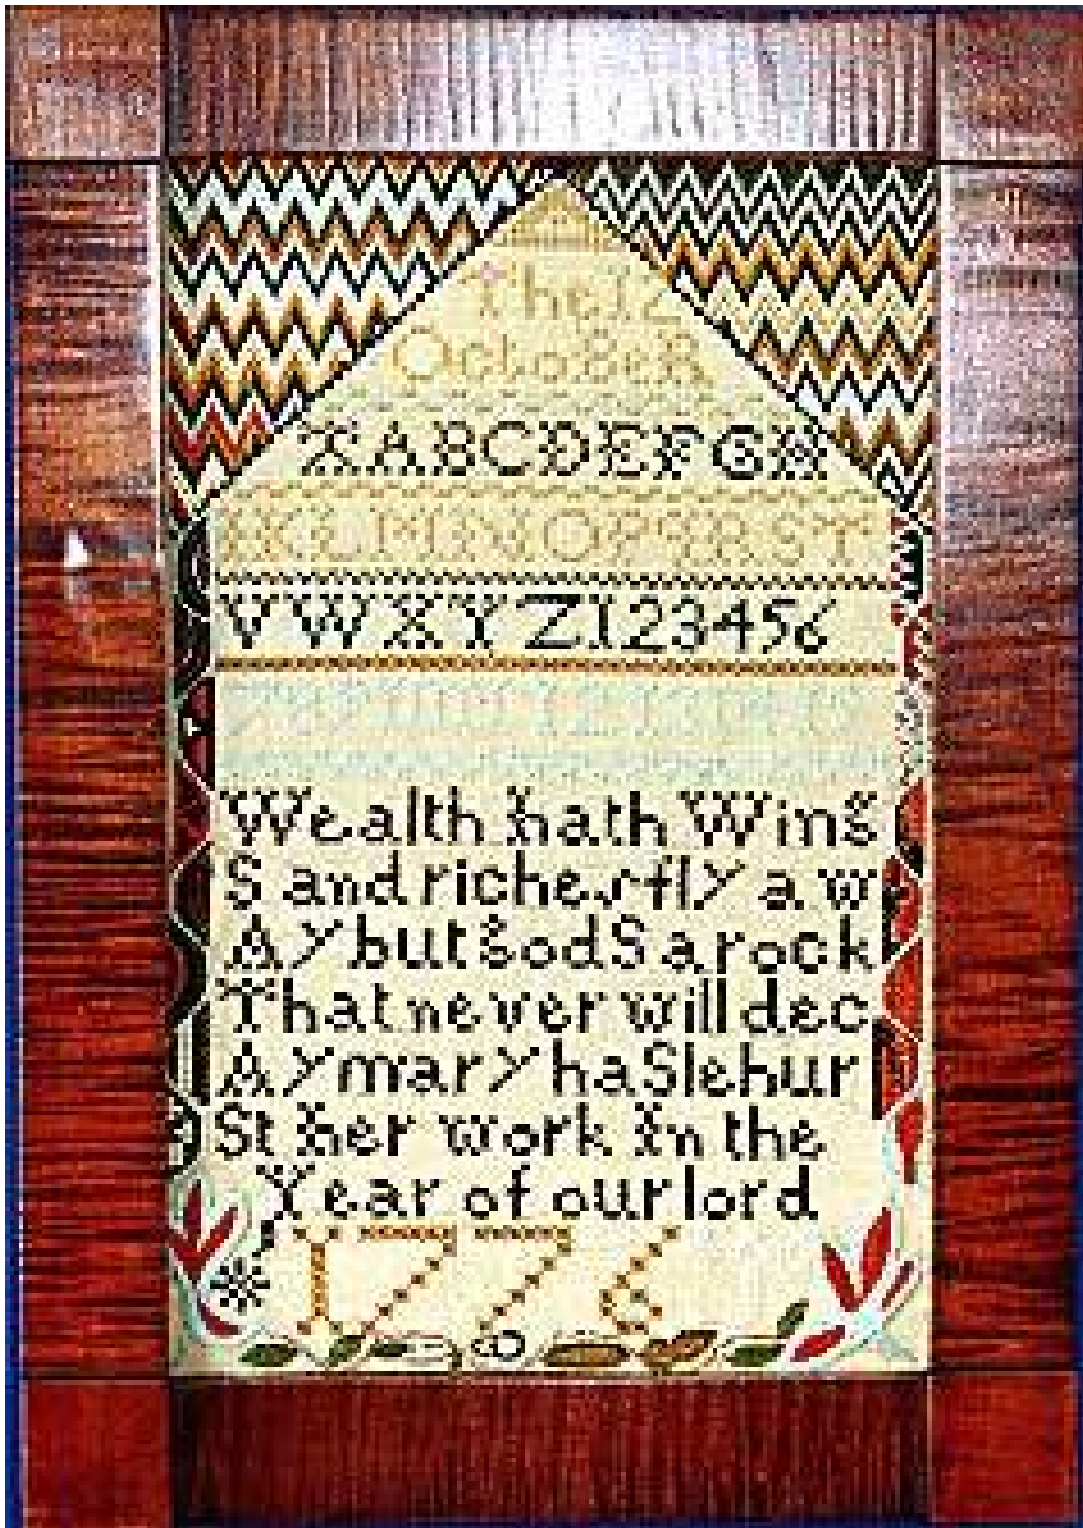 the 12
OctobeR
X A B C D E F G H
I K L M N O P Q R S T
V W X Y Z 1 2 3 4 5 6
Wealth hath Wing
S and riches fly a w
Ay but Gods a rock
That never will dec
Ay mary haslehur
St her work in the
Year of our lord
1776